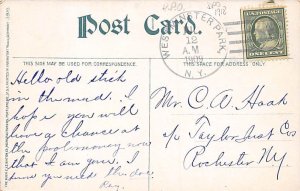 Post Card.
THIS SPACE MAY BE USED FOR CORRESPONDENCE.
THIS SPACE IS FOR ADDRESS ONLY.
WESTMINSTER PARK,
12
A M
1909
N.Y.
ONE CENT
Hello old stick
in the mud. I
hope you will
have a chance at
the pool money now
that I am gone. I
know you need the doe.
Ray.
Mr. C. A. Haak
c/o Taylor Inst Cos
Rochester N.Y.